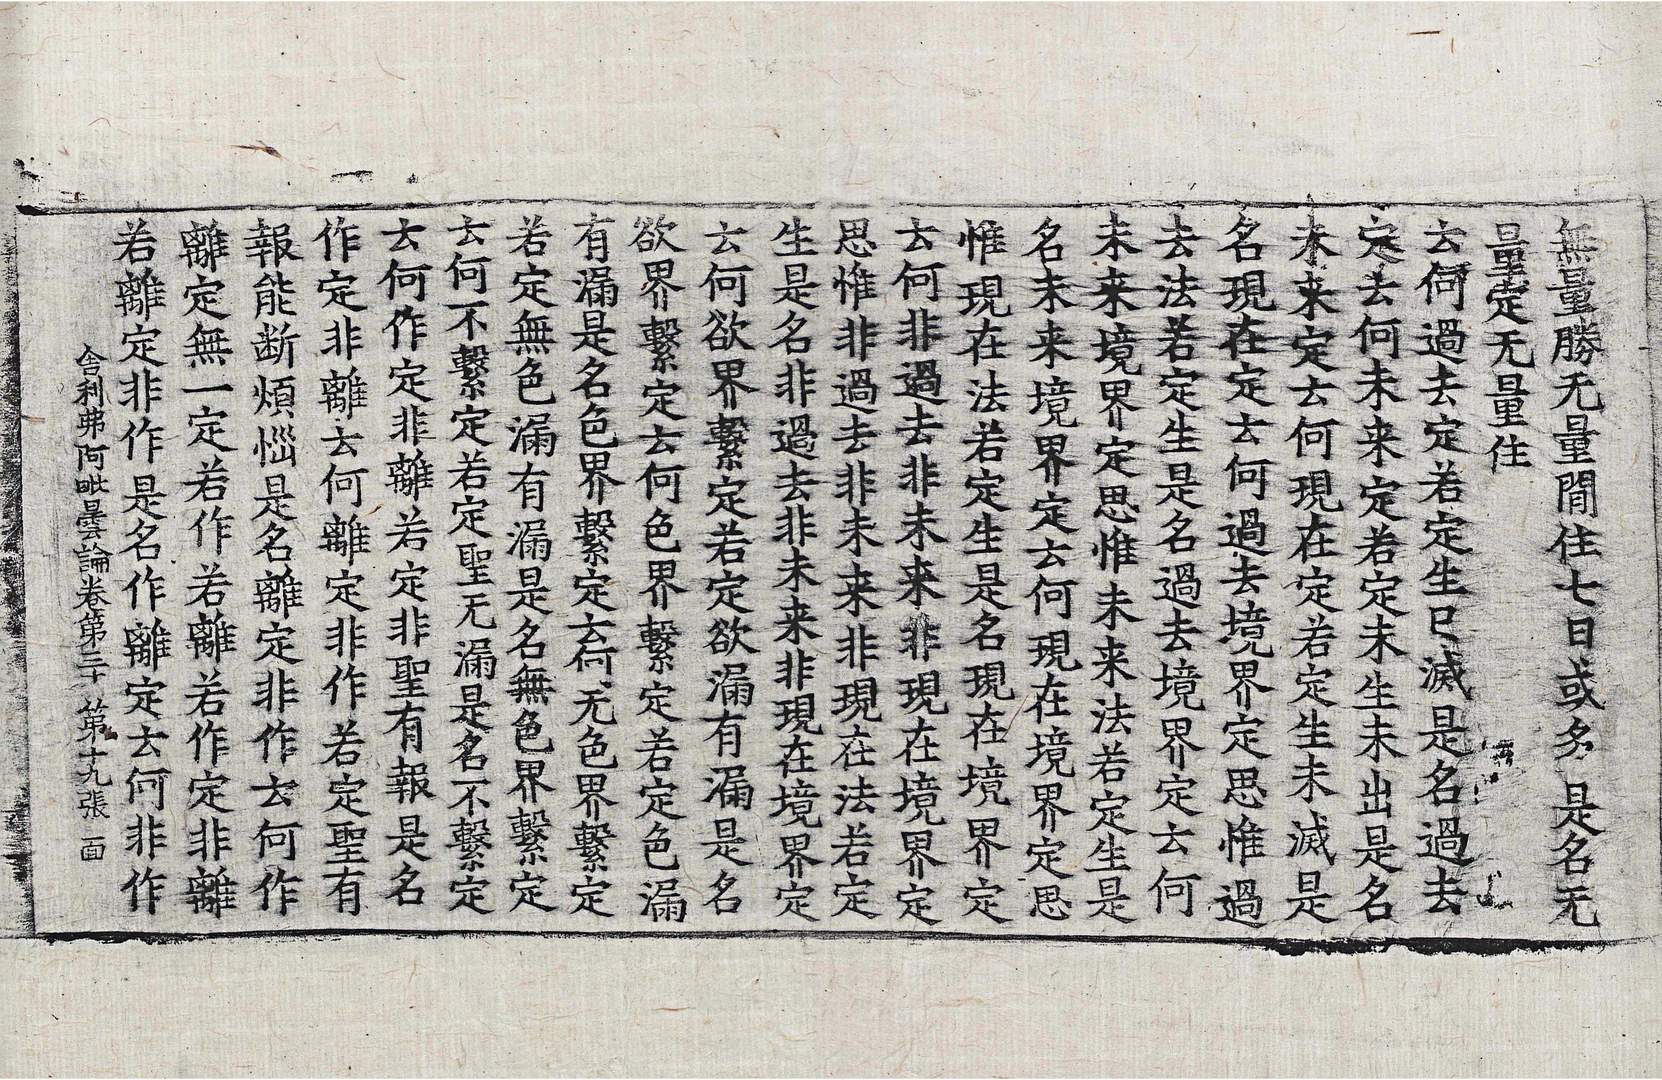 無量勝无量閒住七日或多是名无
量定无量住
去何過去定若定生已滅是名過去
定去何未来定若定未生未出是名
未来定去何現在定若定生未滅是
名現在定去何過去境界定思惟過
去法若定生是名過去境界定去何
未来境界定思惟未来法若定生是
名未来境界定去何現在境界定思
惟現在法若定生是名現在境界定
去何非過去非未来非現在境界定
思惟非過去非未来非現在法若定
生是名非過去非未来非現在境界定
去何欲界繫定若定欲漏有漏是名
欲界繫定去何色界繫定若定色漏
有漏是名色界繫定去何无色界繫定
若定無色漏有漏是名無色界繫定
去何不繫定若定聖无漏是名不繫定
去何作定非離若定非聖有報是名
作定非離去何離定非作若定聖有
報能断煩惱是名離定非作去何作
離定無一定若作若離若作定非離
若離定非作是名作離定去何非作
舎利弗阿毗曇論卷第三十 第十九張 面